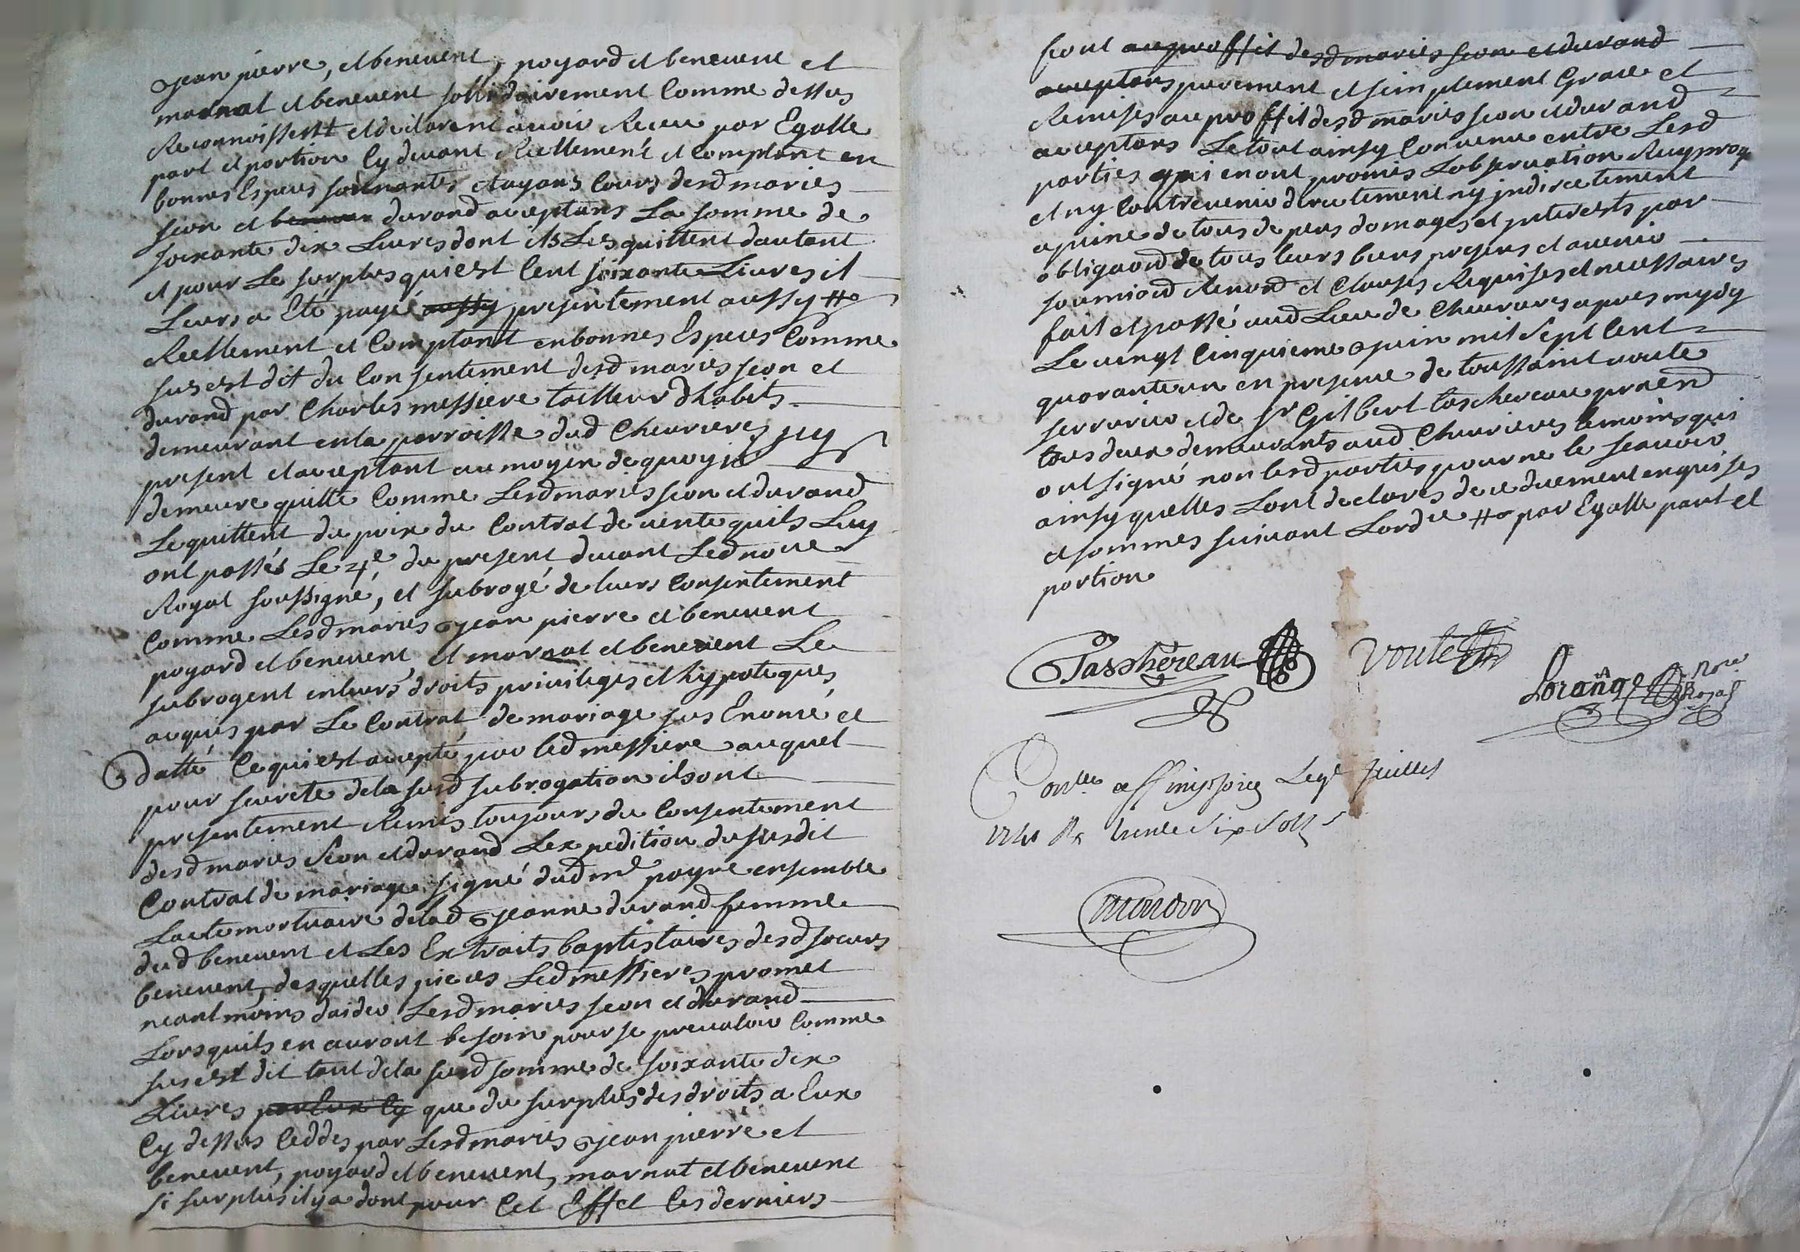 jean pierre, et benevent, poyard et benevent et
marnat et benevent sollidairement Comme dessus
Reconnoissent et declarent avoir Receu par Egalle
part et portion Cy devant Reellement et Comptant en
bonnes Especes sonnantes et ayans Cours desd maries
seon et durand acceptans La somme de
soixante dix Livres dont ils Les quittent dautant
et pour Le surplus qui est Cent soixante Livres il
Leurs a Eté payé aussy presentement aussy #
Reellement et Comptant en bonnes Especes Comme
sus est dit du Consentement desd maries seon et
durand par Charles messiere tailleur dhabits
demeurant en la parroisse dud Chevrieres icy
present et acceptant au moyen de quoy il
demeure quitte Comme Lesd maries seon et durand
Le quittent du prix du Contrat de vente quils Luy
ont passés Le 4e du present devant Led nore
Royal soussigné, et subrogé de leurs Consentement
Comme Lesd maries jean pierre et benevent
poyard et benevent, et marnat et benevent Le
subrogent en leurs droits privileges et hypoteques
acquis par Le Contrat de mariage sus Enoncé et
datté Ce qui est accepté par led messiere auquel
pour seureté de la susd subrogation ils ont
presentement Remis toujours du Consentement
desd maries seon et durand Lexpedition du susdit
Contrat de mariage signé dud me payre ensemble
Lacte mortuaire de lad jeanne durand femme
dud benevent et Les Extraits baptistaires desd sœurs
benevent, desquelles pieces Led messieres promet
neantmoins daider Lesd maries seon et durand
Lorsquils en auront besoin pour se prevaloir Comme
sus est dit tant de la susd somme de soixante dix
Livres par Eux Cy que du surplus des droits a Eux
Cy dessus Ceddés par Lesd maries jean pierre et
benevent, poyard et benevent, marnat et benevent
si surplus il y a dont pour Cet Effet Ces derniers
font au proffit desd maries seon et durand
acceptans purement et simplement Grace et
Remises au proffit desd maries seon et durand
acceptans Le tout ainsy Convenu entre Lesd
parties qui en ont promis Lobservation Reciproq
et ny Contrevenir directement ny indirectement
a peine de tous depens domages et interests par
obligaond de tous leurs biens presens et avenir
soumiond Renond et Clauses Requises et necessaires
fait et passé aud Lieu de Chevrieres apres midy
Le vingt Cinquieme juin mil sept Cent
quarante un en presence de toussaint voute
serrurier et de sr Gilbert taschereau praend
tous deux demeurants aud Chevrieres temoins qui
ont signé non lesd parties pour ne le sçavoir
ainsy quelles Lont declarés de ce duement enquises
et sommés suivant Lordce # par Egalle part et
portion
Taschereau
Voute
Lorange
nore Royal
Conlle a st Le juillet
1741 R trente six sols